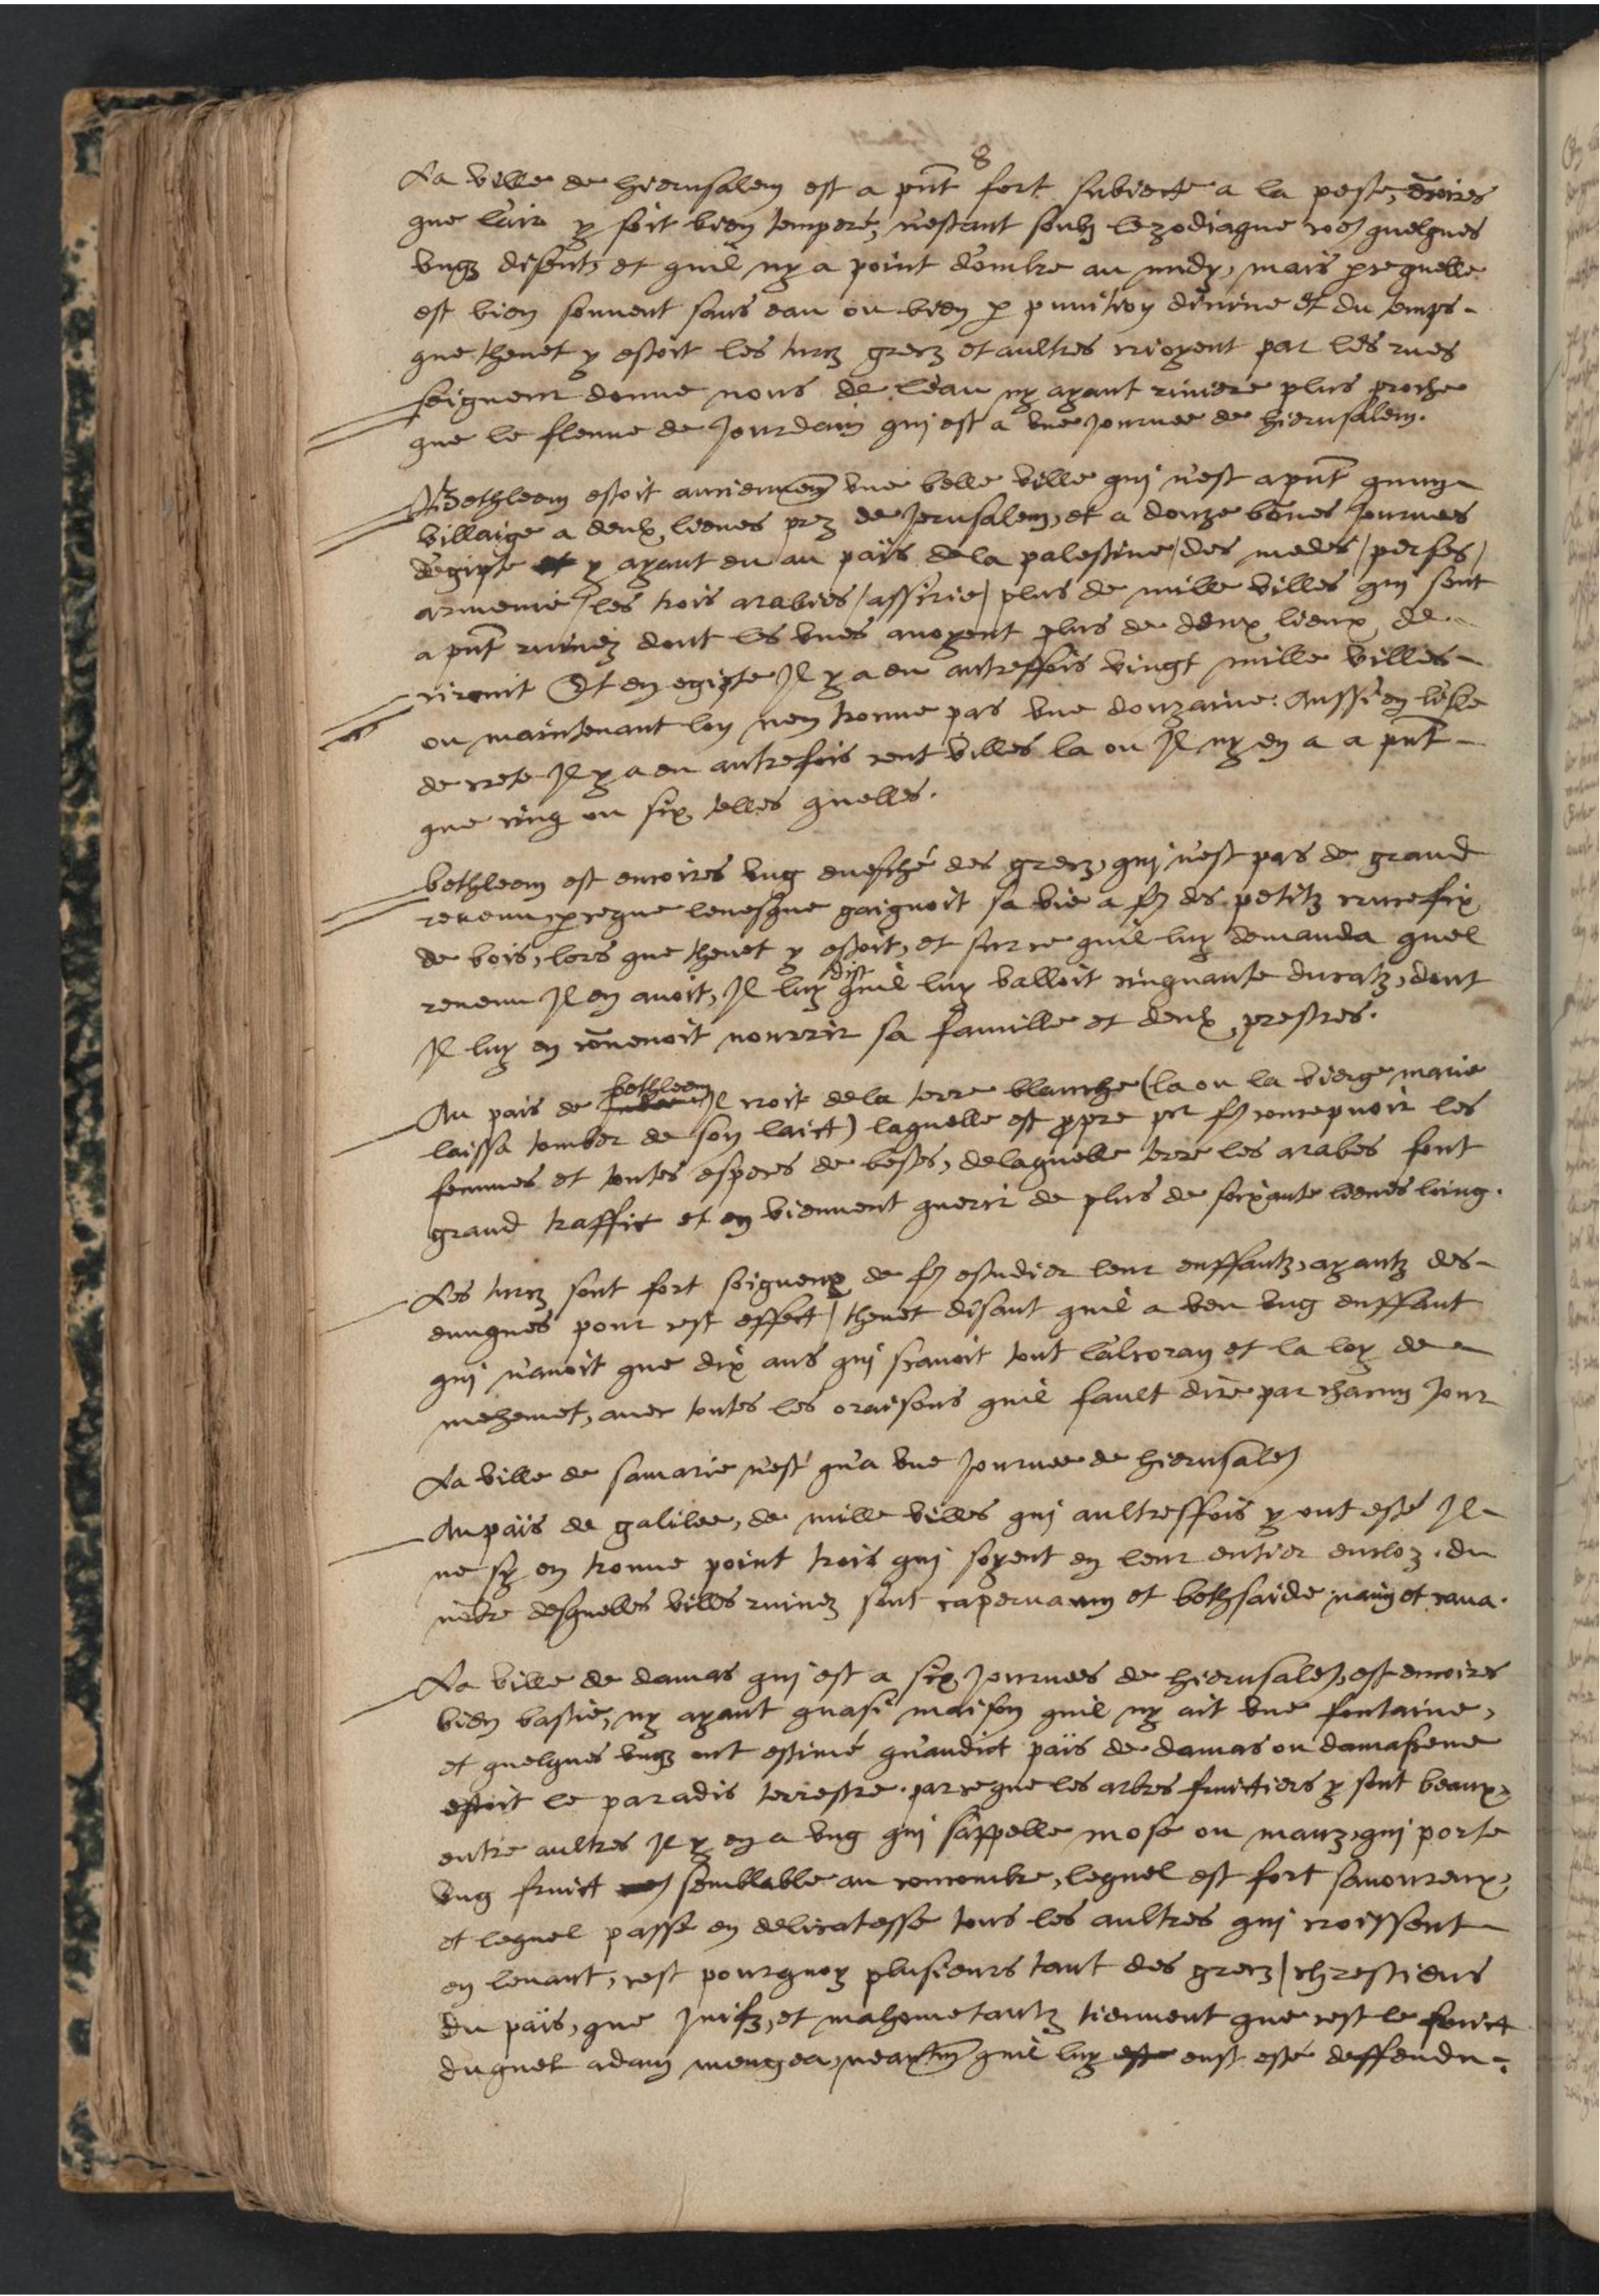 8
La ville de hierusalem est a pñt fort subiecte a la peste, encoires
que l'air y soit bien temperé, n'estant soubz le zodiaque cõe quelques
ungz disent, et quil ny a point d'ombre au midy, mais pceque elle
est bien souvent sans eau ou bien p punition divine et du temps
que thevet y estoit les turcz grecz et aultres crioyent par les rues
seigneur donne nous de l'eau ny ayant riviere plus proche
que le fleuve de Jourdain qui est a une Journee de hierusalem.
Bethleem estoit anciennemẽt une belle ville qui n'est a pñt quung
villaige a deux lieues prez de Jerusalem, et a douze bõnes Journees
d'egipte et y ayant eu au païs de la palestine / des medes / perses /
armenie / les trois arabies / assirie / plus de mille villes qui sont
a pñt ruinez dont les unes avoyent plus de deux lieux de
circuit Et en egipte Il y a eu autreffois vingt mille villes
ou maintenant lon nen trouve pas une douzaine. Aussi en l'isle
de crete Il y a eu autrefois cent villes la ou Il ny en a a pñt
que cinq ou six telles quelles.
bethleem est encoires ung evesché des grecz, qui n'est pas de grand
revenu, pceque levesque gaignoit sa vie a fẽ des petitz crucefix
de bois, lors que thevet y estoit, et sur ce quil luy demanda quel
revenu Il en avoit, Il luy dist quil luy valloit cinquante ducatz, dont
Il luy en cõvenoit nourrir sa famille et deux prestres.
Au pais de bethleem Il croit de la terre blanche (la ou la vierge marie
laissa tomber de son laict) laquelle est ppre pr fẽ concepvoir les
femmes et toutes especes de bestes, de laquelle terre les arabes font
grand traffic et en viennent querir de plus de soixante lieues loing.
Les turcz sont fort soigneux de fẽ estudier leur enffantz, ayantz des
eunques pour cest effect / thevet disant quil a veu ung enffant
qui n'avoit que dix ans qui scavoit tout l'alcoran et la loy de
mehemet, avec toutes les oraisons quil fault dire par chacun Jour
La ville de samarie n'est qu'a une Journee de hierusalẽ
Au païs de galilee, de mille villes qui aultreffois y ont esté Il
ne sy en trouve point trois qui soyent en leur entier encloz. du
nõbre desquelles villes ruinez sont capernaum et bethsaide naim et cana.
La ville de damas qui est a six Journees de hierusalẽ, est encoires
bien bastie, ny ayant quasi maison quil ny ait une fontaine,
et quelques ungz ont estimé qu'audict païs de damas ou damascene
estoit le paradis terrestre. parceque les arbres fruictiers y sont beaux,
entre aultres Il y en a ung qui s'appelle mose ou mauz, qui porte
ung fruict semblable au concombre, lequel est fort savoureux,
et lequel passe en delicatesse tous les aultres qui croissent
en levant, cest pourquoy plusieurs tant des grecz / chrestiens
du païs, que Juifz, et mahometantz tiennent que cest le fruict
duquel adam mengea, neantm̃ quil luy eust esté deffendu.